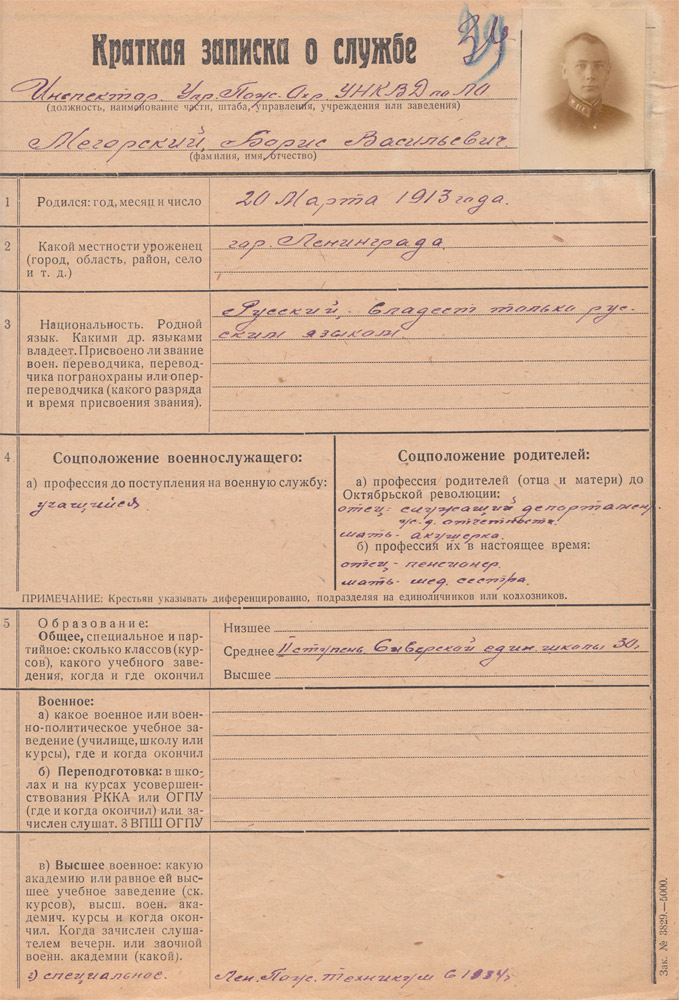 Краткая записка о службе
Инспектор Упр. Пож. Охр. УНКВД по ЛО
(должность, наименование части, штаба, управления, учреждения или заведения)
Мегорский, Борис Васильевич.
(фамилия, имя, отчество)
1 Родился: год, месяц и число
20 Марта 1913 года.
2 Какой местности уроженец
(город, область, район, село
и т. д.)
гор. Ленинграда
3 Национальность. Родной
язык. Какими др. языками
владеет. Присвоено ли звание
воен. переводчика, перевод-
чика погранохраны или опер-
переводчика (какого разряда
и время присвоения звания).
Русский, владеет только рус-
ским языком
4 Соцположение военнослужащего:
а) профессия до поступления на военную службу:
учащийся
Соцположение родителей:
а) профессия родителей (отца и матери) до
Октябрьской революции:
отец: служащий департамен.
ж.д. отчетности.
мать- акушерка.
б) профессия их в настоящее время:
отец- пенсионер.
мать- мед. сестра.
ПРИМЕЧАНИЕ: Крестьян указывать диференцированно, подразделяя на единоличников или колхозников.
5 Образование:
Общее, специальное и пар-
тийное: сколько классов (кур-
сов), какого учебного заве-
дения, когда и где окончил
Низшее
Среднее II ступень Сиверской един. школы 30г.
Высшее
Военное:
а) какое военное или воен-
но-политическое учебное за-
ведение (училище, школу или
курсы), где и когда окончил
б) Переподготовка: в шко-
лах и на курсах усовершен-
ствования РККА или ОГПУ
(где и когда окончил) или за-
числен слушат. З ВПШ ОГПУ
в) Высшее военное: какую
академию или равное ей выс-
шее учебное заведение (ск.
курсов), высш. воен. ака-
демич. курсы и когда окон-
чил. Когда зачислен слуша-
телем вечерн. или заочной
военн. академии (какой).
г) специальное.
Лен. Пож. техникум в 1934г.
Зак. № 3829.—5000.